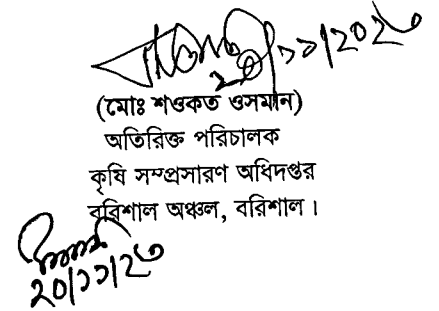 (মোঃ শওকত ওসমান)
অতিরিক্ত পরিচালক
কৃষি সম্প্রসারণ অধিদপ্তর
বরিশাল অঞ্চল, বরিশাল।
২০/১১/২৩